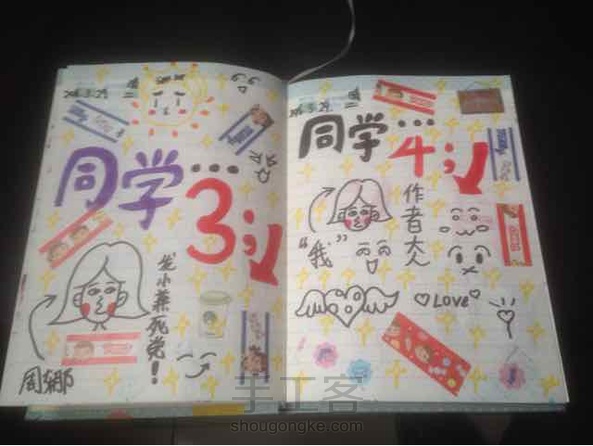 同学…
3
发小兼死党！
周娜
同学…
4
作者大人
“我”
Love
手工客
shougongke.com